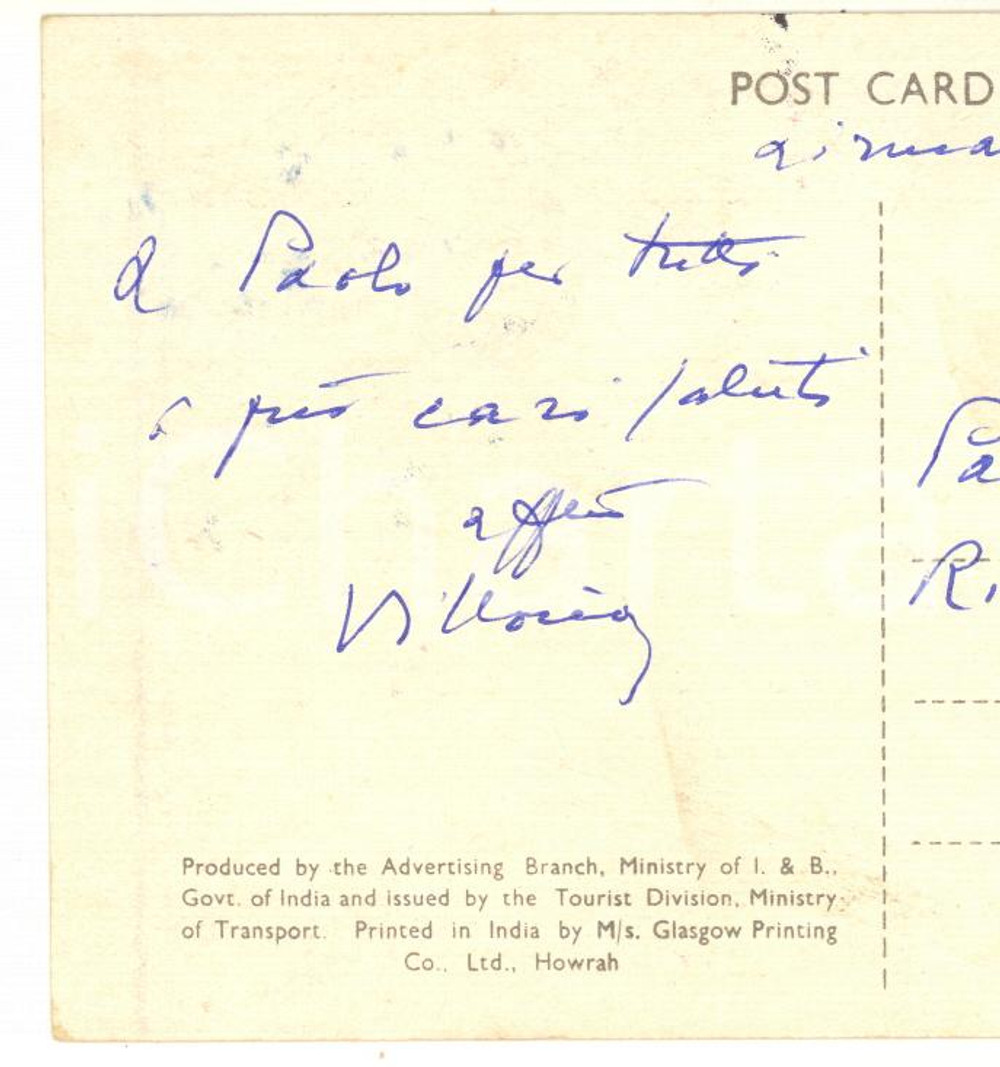 POST CARD
airma
a Paolo per tutto
i più cari saluti
aff.to
Vittorio
Pa
Ri
Produced by the Advertising Branch, Ministry of I. & B.,
Govt. of India and issued by the Tourist Division, Ministry
of Transport. Printed in India by M/s. Glasgow Printing
Co., Ltd., Howrah